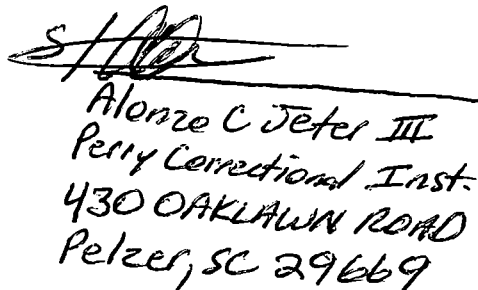 s/
Alonzo C Jeter III
Perry Correctional Inst.
430 OAKLAWN ROAD
Pelzer, SC 29669